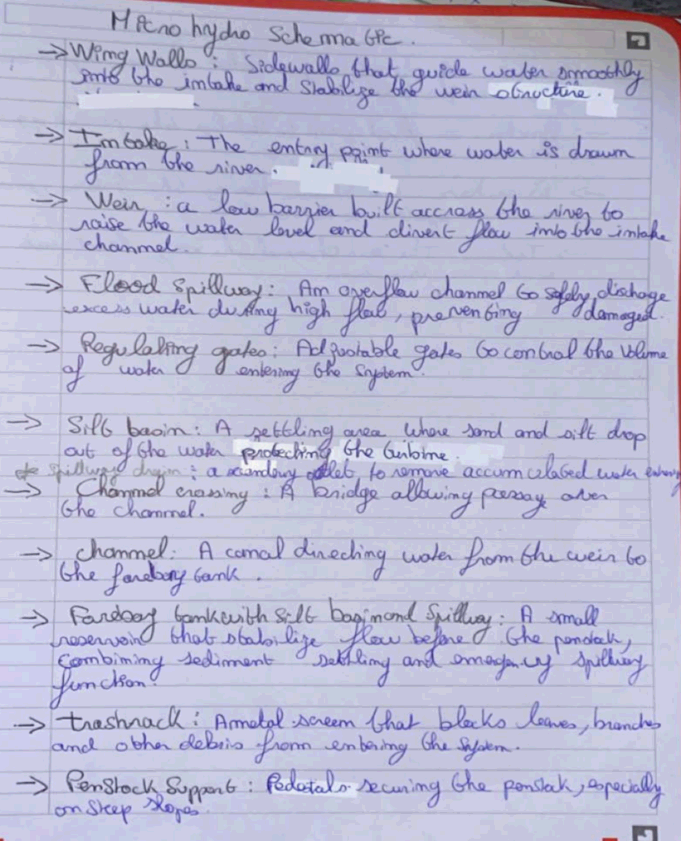 Micro hydro Schematic.
→ Wing Walls: Sidewalls that guide water smoothly
into the intake and stabilize the weir structure.
→ Intake: The entry point where water is drawn
from the river.
→ Weir: a low barrier built accross the river to
raise the water level and divert flow into the intake
channel.
→ Flood Spillway: An overflow channel to safely dischage
excess water during high flow, preventing damaged.
→ Regulating gates: Adjustable gates to control the volume
of water entering the system.
→ Silt basin: A settling area where sand and silt drop
out of the water protecting the turbine.
spillway drain: a secondary outlet to remove accumulated water
→ Channel crossing: A bridge allowing passay over
the channel.
→ channel: A canal directing water from the weir to
the forebay tank.
→ Forebay tank with silt basin and spillway: A small
reservoir that stabilize flow before the penstock,
combining sediment settling and emergency spillway
function.
→ trashrack: A metal screen that blocks leaves, branches
and other debris from entering the system.
→ PenStock Support: Pedestals securing the penstock, especially
on steep slopes.